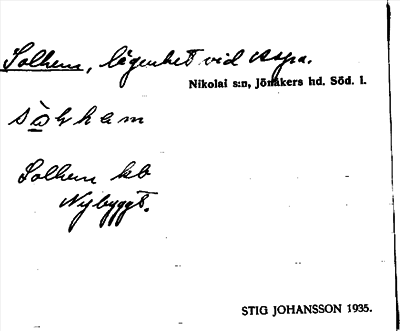 Solhem, lägenhet vid Aspa.
Nikolai s:n, Jönåkers hd. Söd. l.
Solhem kb
Nybyggt.
STIG JOHANSSON 1935.